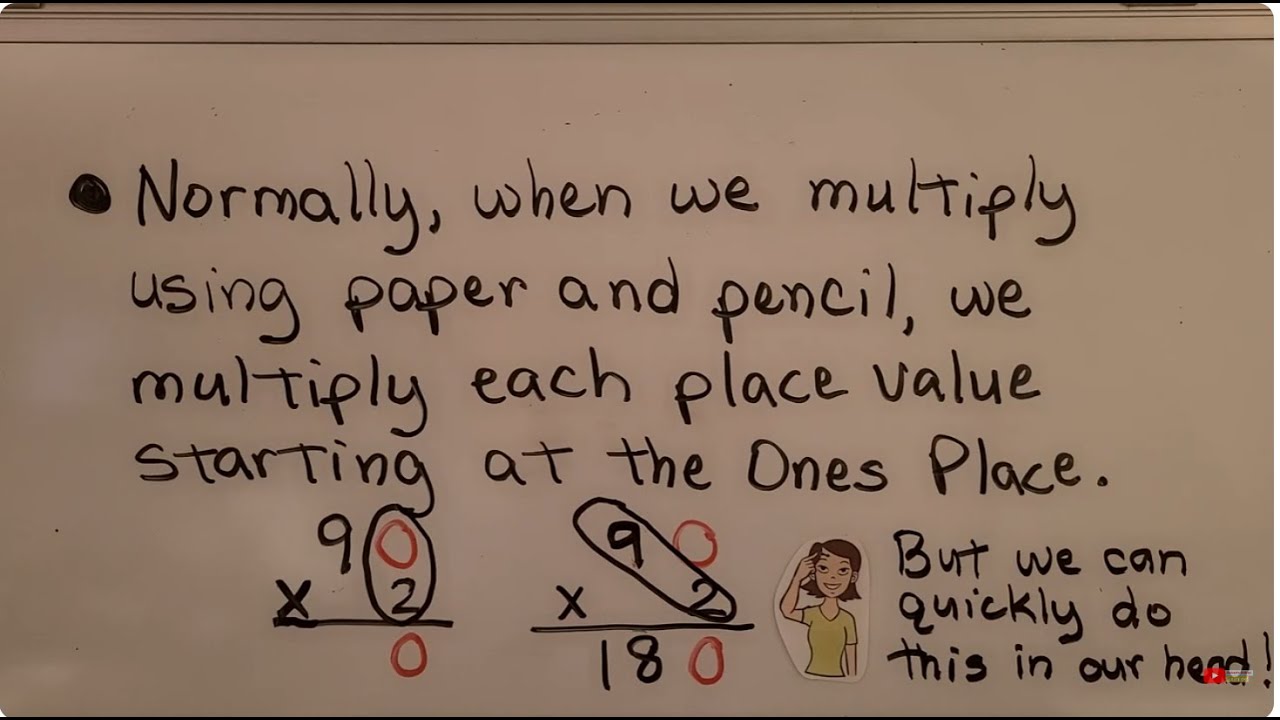 • Normally, when we multiply
using paper and pencil, we
multiply each place value
starting at the Ones Place.
90
x 2
0
90
x 2
180
But we can
quickly do
this in our head!